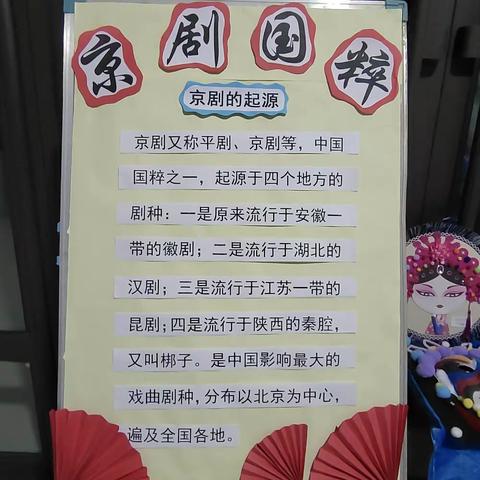 京剧国粹
京剧的起源
京剧又称平剧、京剧等，中国
国粹之一，起源于四个地方的
剧种：一是原来流行于安徽一
带的徽剧；二是流行于湖北的
汉剧；三是流行于江苏一带的
昆剧；四是流行于陕西的秦腔，
又叫梆子。是中国影响最大的
戏曲剧种，分布以北京为中心，
遍及全国各地。